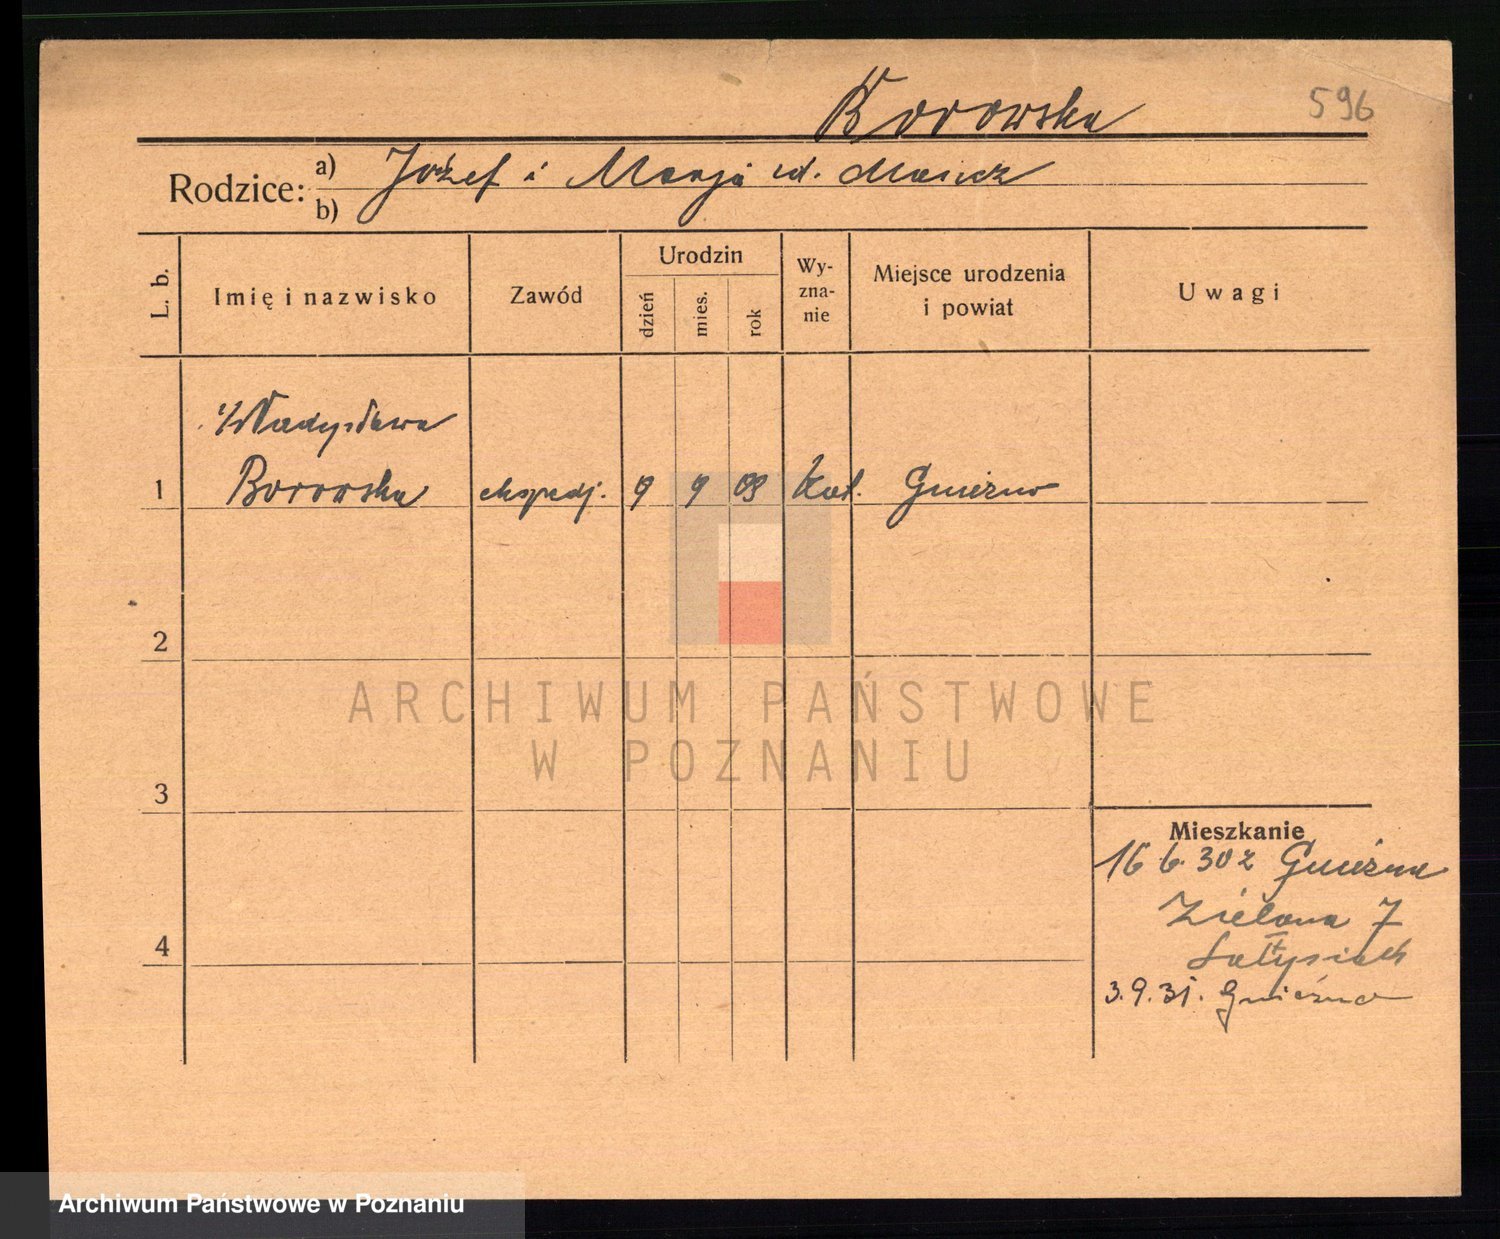 Borowska 596
Rodzice: a) Józef i Marja
b)
L. b.
Imię i nazwisko
Zawód
Urodzin
dzień
mies.
rok
Wy-
zna-
nie
Miejsce urodzenia
i powiat
Uwagi
Władysława
1 Borowska ekspedj. 9 9 09 kat. Gniezno
2
3
4
Mieszkanie
16 6. 30 z Gniezna
Zielona 7
3.9.31. Gniezno
ARCHIWUM PAŃSTWOWE
W POZNANIU
Archiwum Państwowe w Poznaniu